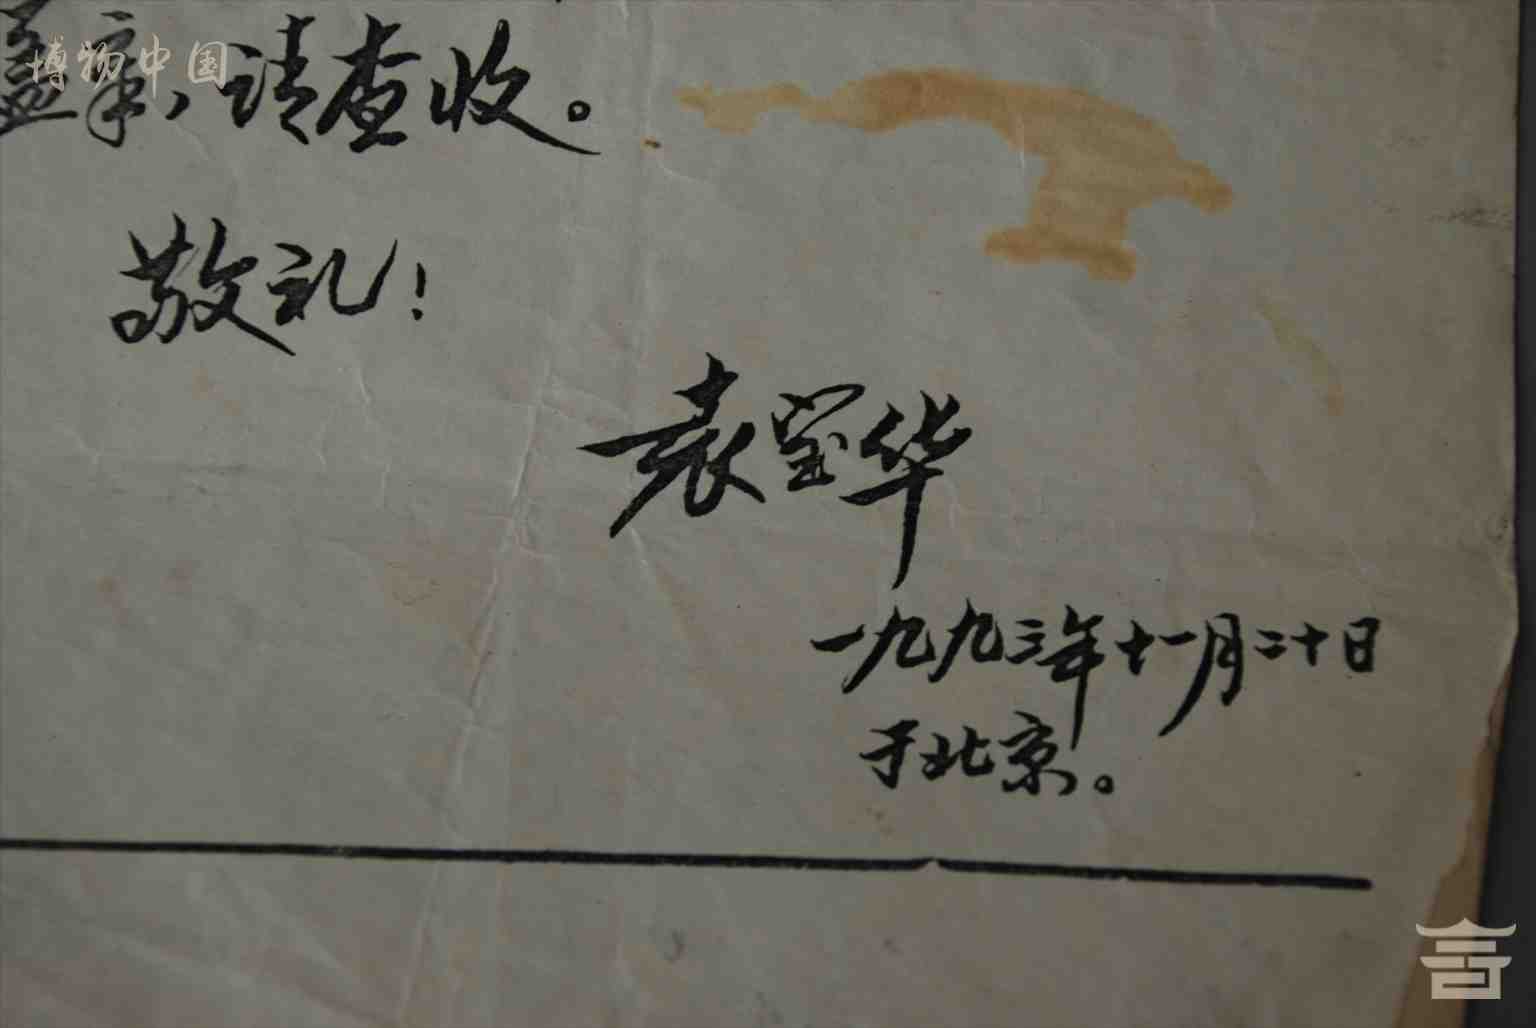 博物中国
盖章，请查收。
敬礼！
袁宝华
一九九三年十一月二十日
于北京。